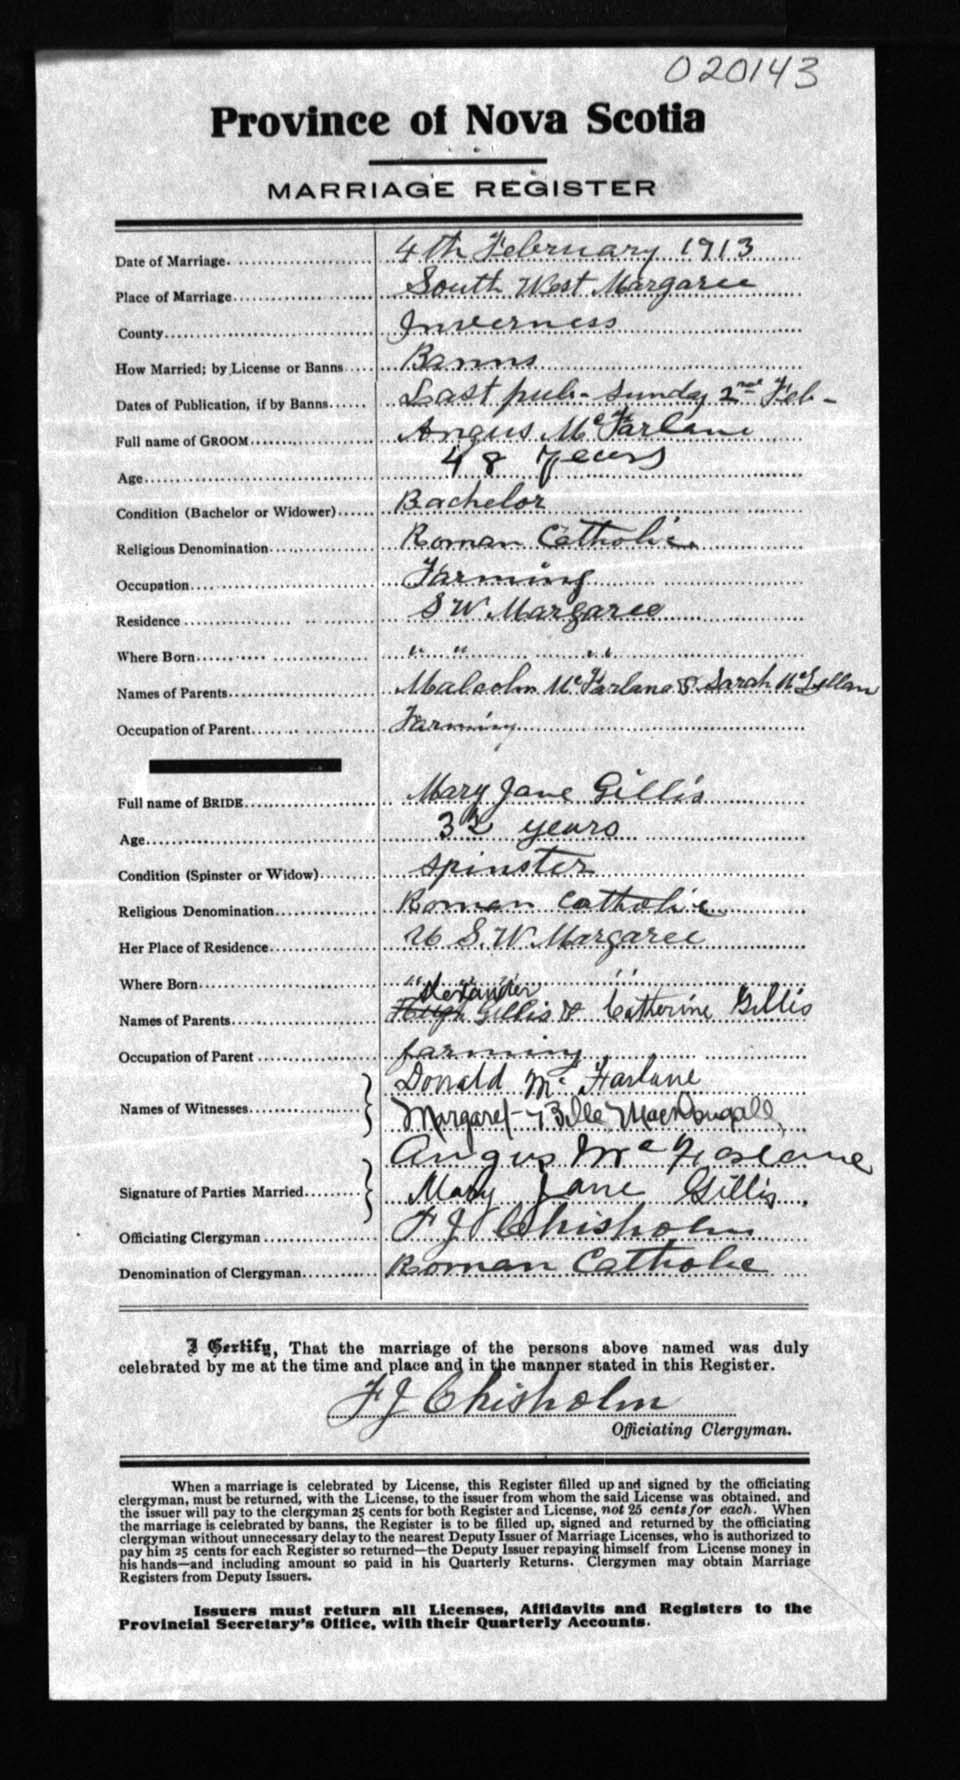 020143
Province of Nova Scotia
MARRIAGE REGISTER
Date of Marriage 4th February 1913
Place of Marriage South West Margaree
County Inverness
How Married; by License or Banns Banns
Dates of Publication, if by Banns Last pub- Sunday 2nd Feb-
Full name of GROOM Angus McFarlane
Age 48 years
Condition (Bachelor or Widower) Bachelor
Religious Denomination Roman Catholic
Occupation Farming
Residence S W Margaree
Where Born " " " "
Names of Parents Malcolm McFarlane & Sarah McLellan
Occupation of Parent Farming
Full name of BRIDE Mary Jane Gillis
Age 32 years
Condition (Spinster or Widow) spinster
Religious Denomination Roman Catholic
Her Place of Residence S. W Margaree
Where Born " " " "
Alexander
Names of Parents Hugh Gillis & Catherine Gillis
Occupation of Parent farming
Names of Witnesses Donald McFarlane
Margaret Belle MacDougall
Signature of Parties Married Angus McFarlane
Mary Jane Gillis
Officiating Clergyman F J Chisholm
Denomination of Clergyman Roman Catholic
I Certify, That the marriage of the persons above named was duly
celebrated by me at the time and place and in the manner stated in this Register.
F J Chisholm
Officiating Clergyman.
When a marriage is celebrated by License, this Register filled up and signed by the officiating
clergyman, must be returned, with the License, to the issuer from whom the said License was obtained, and
the issuer will pay to the clergyman 25 cents for both Register and License, not 25 cents for each. When
the marriage is celebrated by banns, the Register is to be filled up, signed and returned by the officiating
clergyman without unnecessary delay to the nearest Deputy Issuer of Marriage Licenses, who is authorized to
pay him 25 cents for each Register so returned—the Deputy Issuer repaying himself from License money in
his hands—and including amount so paid in his Quarterly Returns. Clergymen may obtain Marriage
Registers from Deputy Issuers.
Issuers must return all Licenses, Affidavits and Registers to the
Provincial Secretary's Office, with their Quarterly Accounts.